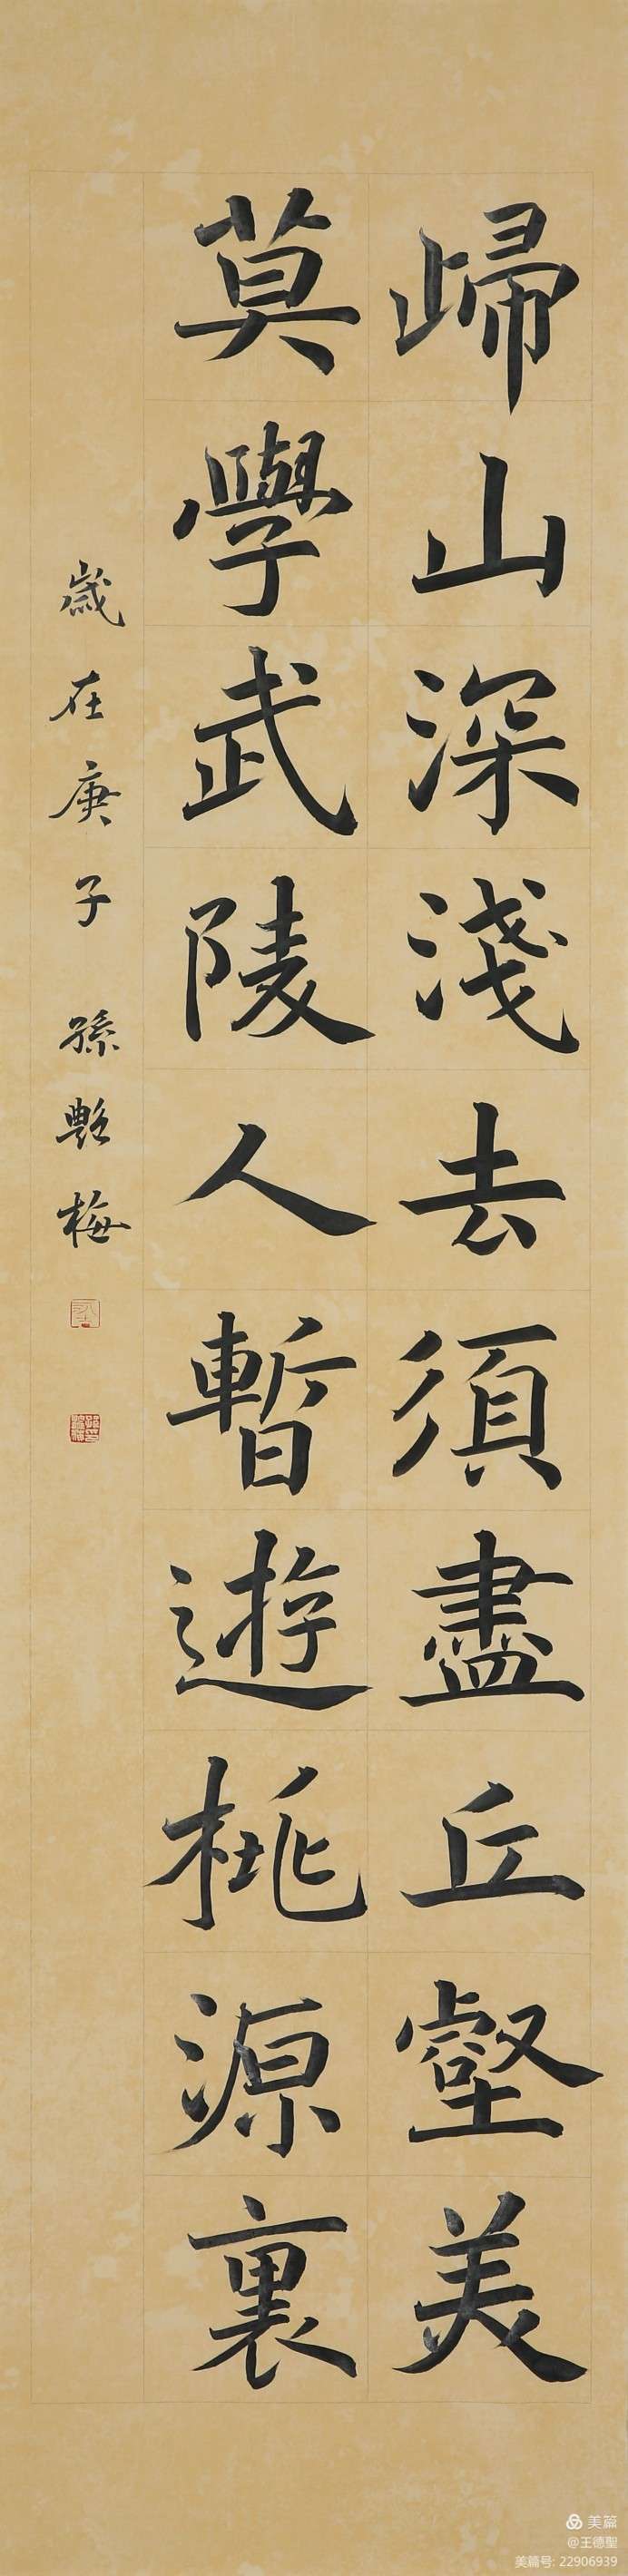 歸山深淺去須盡丘壑美
莫學武陵人暫遊桃源裏
歲在庚子 孫艷梅
美篇
@王德聖
美篇号: 22906939